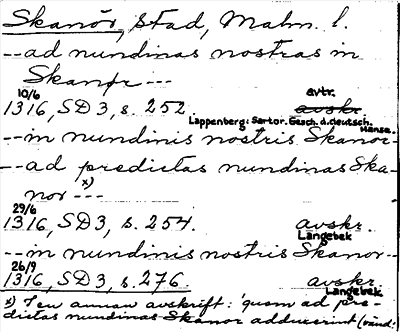 Skanör, stad, Malm. l.
--ad nundinas nostras in
Skanør ---
10/6 avtr.
1316, SD 3, s. 252. avskr.
Lappenberg: Sartor. Gesch. d. deutsch. Hanse.
--in nundinis nostris Skanor-
--ad predictas nundinas Ska-
nor x) ---
29/6
1316, SD 3, s. 254. avskr.
Langebek
--in nundinis nostris Skanor--
26/9
1316, SD 3, s. 276. avskr.
Langebek.
x) I en annan avskrift: 'quom ad pre-
dictas nundinas Skanor adduxerint (vånd: